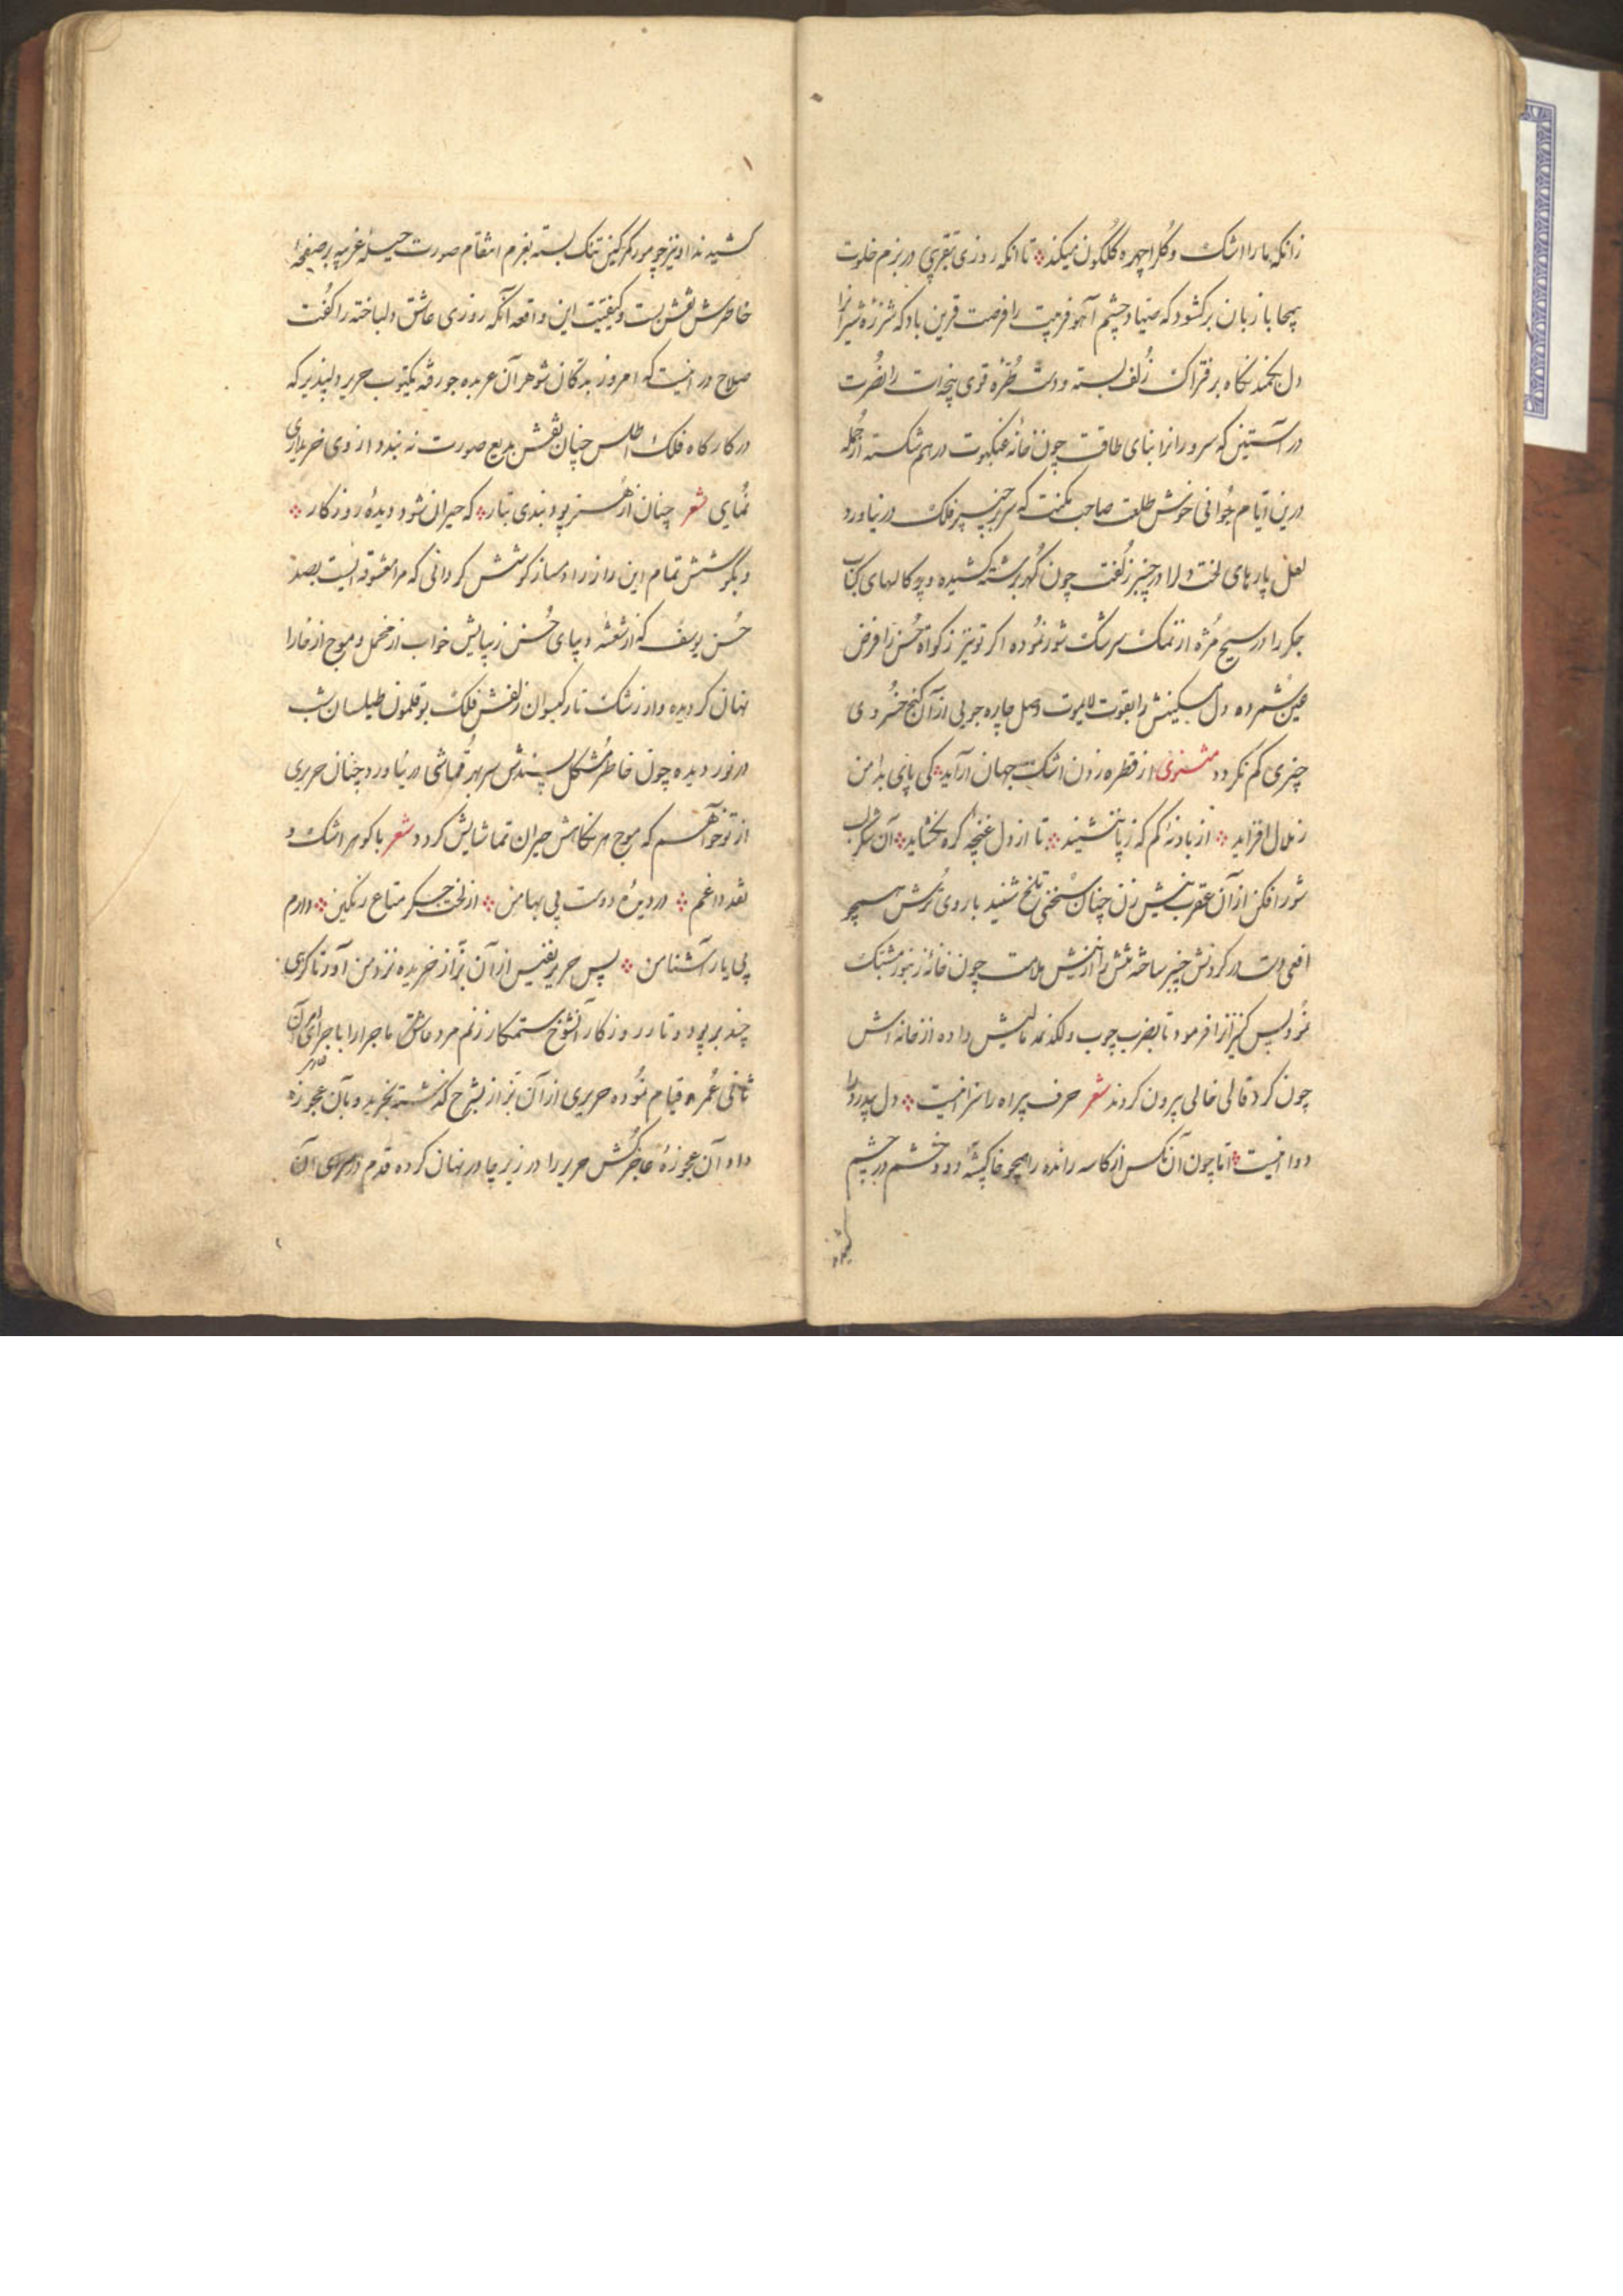 زانکه ما را اشک و گل را چهره گلگون میکند تا آنکه روزی بتقریبی در بزم خلوت
بیمحابا زبان برکشود که صیاد چشم آهو فریبت را فرصت قرین باد که شرزه شیرانرا
دل بکمند نگاه بر فتراک زلف بسته و دست طره قوی پنجه‌ات را نصرت
در آستین که سرورانرا بنای طاقت چون خانه عنکبوت در هم شکسته از جمله
درین ایام جوانی خوش طلعت صاحب مکنت که سر بر چنبر فلک در نیاورد
لعل پارهای لخت دل را در چنبر زلفت چون گهر برشته کشیده و پرکالهای کباب
جگر را در سیخ مژه از نمک سرشک شور نموده اگر تو نیز زکواة حسن را فرض
عین شمرده دل مسکینش را بقوت لایموت وصل چاره جویی از آن گنج خسروی
چیزی کم نگردد مثنوی از قطره زدن اشک جهان آراید کی پای بدامن
زملال افزاید از باد نه کم که زپا ننشیند تا از دل غنچه گره بگشاید آن شکر لب
شور افکن از آن عقرب نیش زن چنان سخنی تلخ شنید با روی ترش همچو
افعی دست در گردنش چنبر ساخته تنش را از نیش ملامت چون خانه زنبور مشبک
نمود پس کنیزانرا فرمود تا بضرب چوب و لگد نمد مالیش داده از خانه‌اش
چون گرد قالی خالی بیرون کردند شعر حرف بیراه را سزا اینست دل بیدرد را
دوا اینست اما چون آن ناکس از کاسه رانده را همچو خاکپشته دود خشم در چشم
کشیدند
کشیدند او نیز چو مور کمر کین تنک بسته بعزم انتقام صورت حیله غریبه بر صفحه
خاطرش نقش بست و کیفیت این واقعه آنکه روزی عاشق دلباخته را گفت
صلاح در اینست که امروز بدکان شوهر آن عربده جو رفته یکتوب حریر دلپذیر که
در کارگاه فلک اطلس چنان نقش بدیع صورت نه بندد از وی خریداری
نمای شعر چنان از هنر پود بندی بتار که حیران شود دیده روزگار
و بگو شش تمام این راز را دمساز گوشش گردانی که مرا معشوقه ایست بصد
حسن یوسف که از شعشه دیبای حسن زیبایش خواب از مخمل و موج از خارا
نهان گردیده و از رشک تار گیسوان زلفش فلک بوقلمون طیلسان شب
در نوردیده چون خاطر مشکل پسندش سر بهر قماشی در نیاورد چنان حریری
از تو خواهم که موج هر نگاهش حیران تماشایش گردد شعر با گوهر اشک و
نقد داغم در دیده دوست بی بها من از لخت جگر متاع رنگین دارم
پی یار آشنا من پس حریر نفیس از آن بزاز خریده نزد من آور تا گرهی
چند بر پود و تار روزگار آنشوخ ستمکار زنم مرد عاشق ماجرا را باجرای امر آن
ثانی عمره قیام نموده حریری از آن بزاز بشرح گذشته بخرید و بآن عجوزه
داد آن عجوزه حریر را در زیر چادر نهان کرده قدم در سرای آن